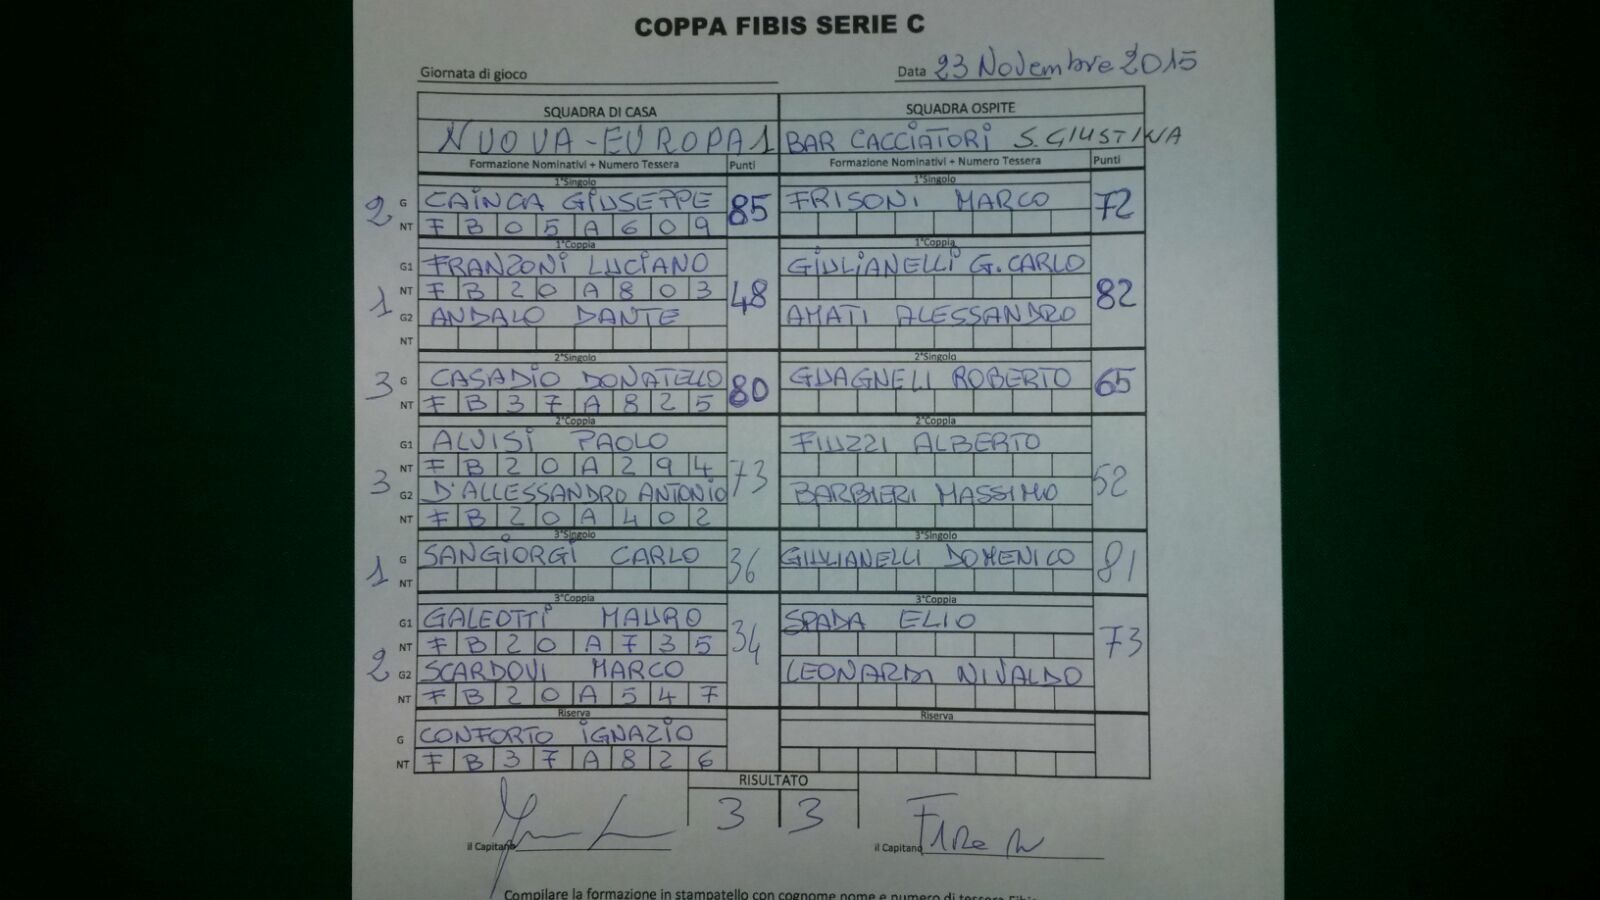 COPPA FIBIS SERIE C
Giornata di gioco
Data 23 Novembre 2015
SQUADRA DI CASA SQUADRA OSPITE
NUOVA-EUROPA 1 BAR CACCIATORI S. GIUSTINA
Formazione Nominativi + Numero Tessera Punti Formazione Nominativi + Numero Tessera Punti
1°Singolo 1°Singolo
2 G CAINCA GIUSEPPE 85 FRISONI MARCO 72
NT FB05A609
1°Coppia 1°Coppia
G1 FRANZONI LUCIANO GIULIANELLI G.CARLO
1 NT FB20A803 48 82
G2 ANDALO DANTE AMATI ALESSANDRO
NT
2°Singolo 2°Singolo
3 G CASADIO DONATELLO 80 GUAGNELI ROBERTO 65
NT FB37A825
2°Coppia 2°Coppia
G1 ALVISI PAOLO FIUZZI ALBERTO
NT FB20A294 73 52
3 G2 D'ALLESSANDRO ANTONIO BARBIERI MASSIMO
NT FB20A402
3°Singolo 3°Singolo
1 G SANGIORGI CARLO 36 GIULIANELLI DOMENICO 81
NT
3°Coppia 3°Coppia
G1 GALEOTTI MAURO SPADA ELIO
NT FB20A735 34 73
2 G2 SCARDOVI MARCO LEONARDI NIVALDO
NT FB20A547
Riserva Riserva
G CONFORTO IGNAZIO
NT FB37A826
RISULTATO
3 3
il Capitano il Capitano
Compilare la formazione in stampatello con cognome nome e numero di tessera Fibis